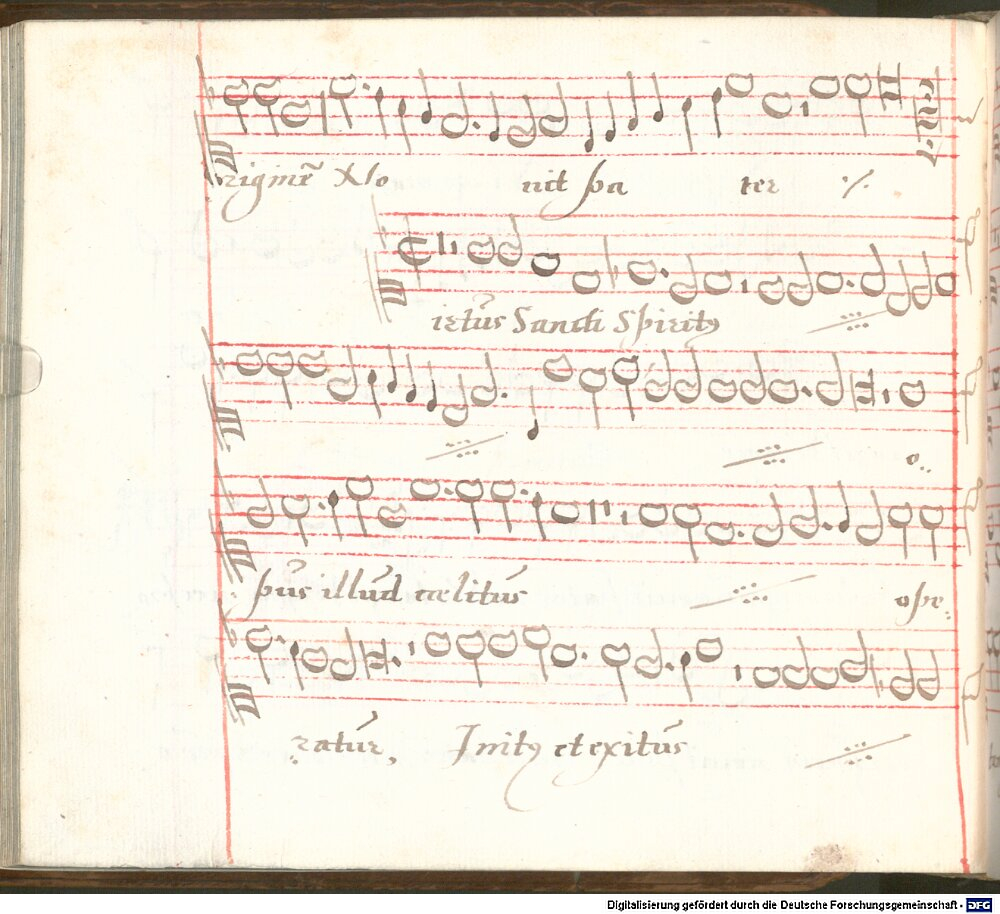 rigmē No uit pa ter ·/.
irtus Sancti Spiritꝯ
o..
pus illud cœlitus ope..
ratur, Initꝯ et exitus
Digitalisierung gefördert durch die Deutsche Forschungsgemeinschaft - DFG